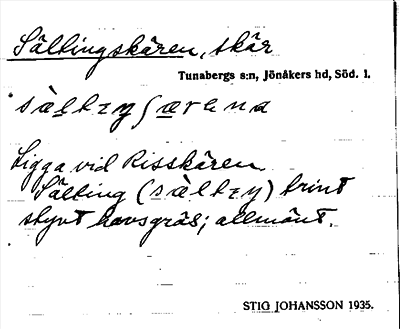 Sältingskären, skär
Tunabergs s:n, Jönåkers hd, Söd. l.
Ligga vid Risskären
Sälting (sàltıŋ) brint
styvt havsgräs; allmänt.
STIG JOHANSSON 1935.